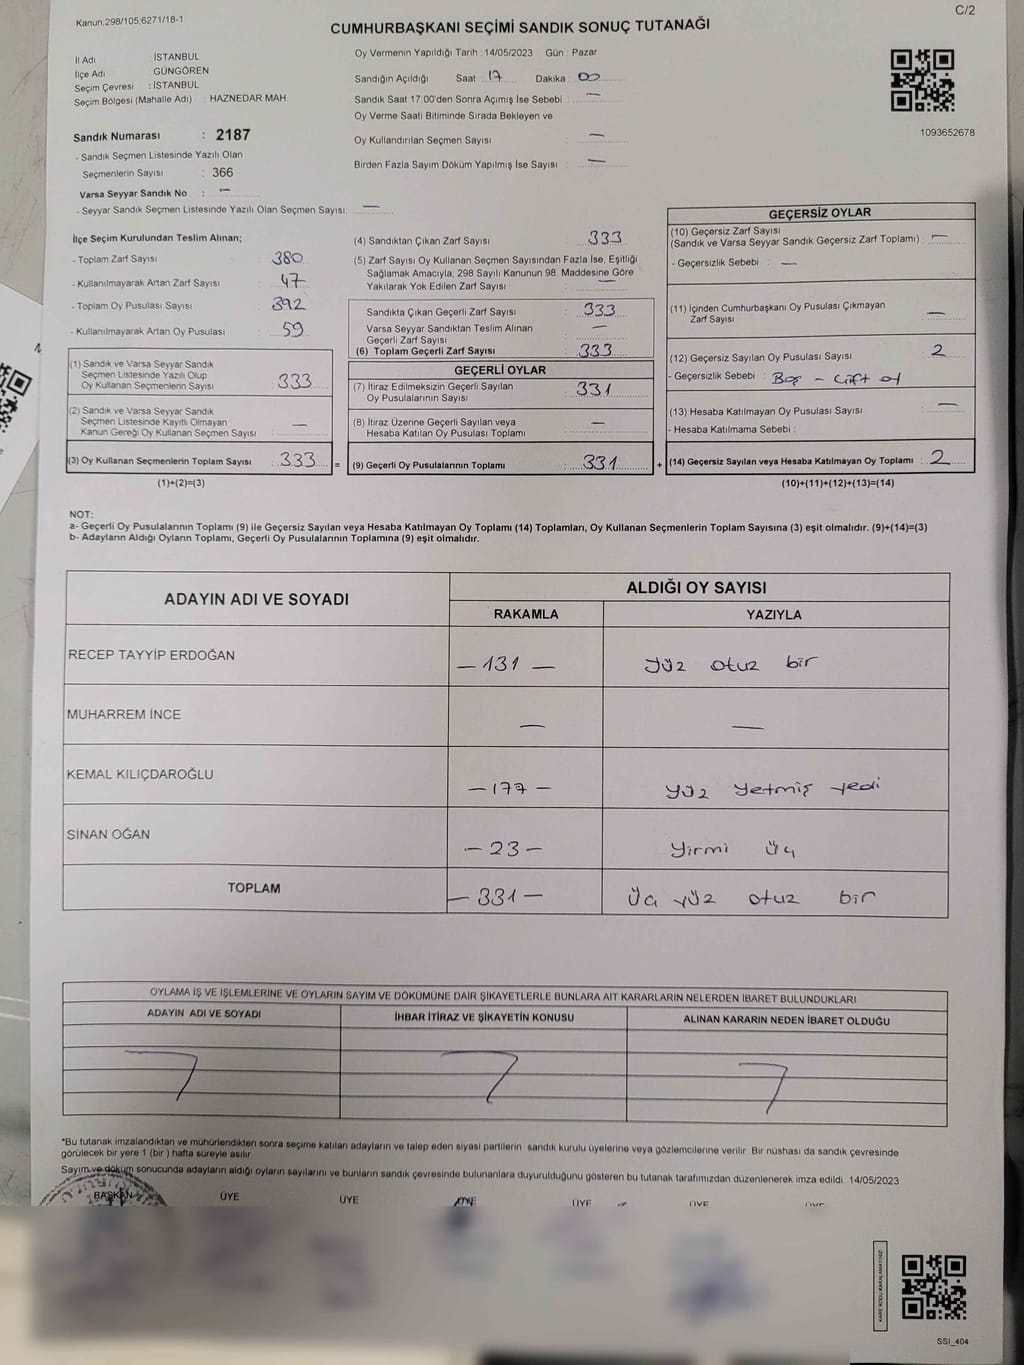 Kanun,298/105,6271/18-1
C/2
CUMHURBAŞKANI SEÇİMİ SANDIK SONUÇ TUTANAĞI
İl Adı İSTANBUL
İlçe Adı GÜNGÖREN
Seçim Çevresi : İSTANBUL
Seçim Bölgesi (Mahalle Adı) : HAZNEDAR MAH.
Oy Vermenin Yapıldığı Tarih : 14/05/2023 Gün : Pazar
Sandığın Açıldığı Saat : 17 Dakika : 00
Sandık Saat 17:00'den Sonra Açımış İse Sebebi : —
Oy Verme Saati Bitiminde Sırada Bekleyen ve
Oy Kullandırılan Seçmen Sayısı : —
Birden Fazla Sayım Döküm Yapılmış İse Sayısı : —
1093652678
Sandık Numarası : 2187
- Sandık Seçmen Listesinde Yazılı Olan
Seçmenlerin Sayısı : 366
Varsa Seyyar Sandık No : —
- Seyyar Sandık Seçmen Listesinde Yazılı Olan Seçmen Sayısı: —
İlçe Seçim Kurulundan Teslim Alınan;
- Toplam Zarf Sayısı : 380
- Kullanılmayarak Artan Zarf Sayısı : 47
- Toplam Oy Pusulası Sayısı : 392
- Kullanılmayarak Artan Oy Pusulası : 59
(1) Sandık ve Varsa Seyyar Sandık
Seçmen Listesinde Yazılı Olup
Oy Kullanan Seçmenlerin Sayısı : 333
(2) Sandık ve Varsa Seyyar Sandık
Seçmen Listesinde Kayıtlı Olmayan
Kanun Gereği Oy Kullanan Seçmen Sayısı : —
(3) Oy Kullanan Seçmenlerin Toplam Sayısı : 333 =
(1)+(2)=(3)
(4) Sandıktan Çıkan Zarf Sayısı : 333
(5) Zarf Sayısı Oy Kullanan Seçmen Sayısından Fazla İse, Eşitliği
Sağlamak Amacıyla, 298 Sayılı Kanunun 98. Maddesine Göre
Yakılarak Yok Edilen Zarf Sayısı : —
Sandıkta Çıkan Geçerli Zarf Sayısı : 333
Varsa Seyyar Sandıktan Teslim Alınan
Geçerli Zarf Sayısı : —
(6) Toplam Geçerli Zarf Sayısı : 333
GEÇERLİ OYLAR
(7) İtiraz Edilmeksizin Geçerli Sayılan
Oy Pusulalarının Sayısı : 331
(8) İtiraz Üzerine Geçerli Sayılan veya
Hesaba Katılan Oy Pusulası Toplamı : —
(9) Geçerli Oy Pusulalarının Toplamı : 331 +
GEÇERSİZ OYLAR
(10) Geçersiz Zarf Sayısı
(Sandık ve Varsa Seyyar Sandık Geçersiz Zarf Toplamı) : —
- Geçersizlik Sebebi : —
(11) İçinden Cumhurbaşkanı Oy Pusulası Çıkmayan
Zarf Sayısı : —
(12) Geçersiz Sayılan Oy Pusulası Sayısı : 2
- Geçersizlik Sebebi : Boş - Çift oy
(13) Hesaba Katılmayan Oy Pusulası Sayısı : —
- Hesaba Katılmama Sebebi :
(14) Geçersiz Sayılan veya Hesaba Katılmayan Oy Toplamı : 2
(10)+(11)+(12)+(13)=(14)
NOT:
a- Geçerli Oy Pusulalarının Toplamı (9) ile Geçersiz Sayılan veya Hesaba Katılmayan Oy Toplamı (14) Toplamları, Oy Kullanan Seçmenlerin Toplam Sayısına (3) eşit olmalıdır. (9)+(14)=(3)
b- Adayların Aldığı Oyların Toplamı, Geçerli Oy Pusulalarının Toplamına (9) eşit olmalıdır.
ADAYIN ADI VE SOYADI ALDIĞI OY SAYISI
RAKAMLA YAZIYLA
RECEP TAYYİP ERDOĞAN — 131 — Yüz otuz bir
MUHARREM İNCE — —
KEMAL KILIÇDAROĞLU — 177 — yüz yetmiş yedi
SİNAN OĞAN — 23 — Yirmi üç
TOPLAM — 331 — üç yüz otuz bir
OYLAMA İŞ VE İŞLEMLERİNE VE OYLARIN SAYIM VE DÖKÜMÜNE DAİR ŞİKAYETLERLE BUNLARA AİT KARARLARIN NELERDEN İBARET BULUNDUKLARI
ADAYIN ADI VE SOYADI İHBAR İTİRAZ VE ŞİKAYETİN KONUSU ALINAN KARARIN NEDEN İBARET OLDUĞU
*Bu tutanak imzalandıktan ve mühürlendikten sonra seçime katılan adayların ve talep eden siyasi partilerin sandık kurulu üyelerine veya gözlemcilerine verilir. Bir nüshası da sandık çevresinde
görülecek bir yere 1 (bir ) hafta süreyle asılır.
Sayım ve döküm sonucunda adayların aldığı oyların sayılarını ve bunların sandık çevresinde bulunanlara duyurulduğunu gösteren bu tutanak tarafımızdan düzenlenerek imza edildi. 14/05/2023
BAŞKAN ÜYE ÜYE ÜYE ÜYE ÜYE ÜYE
KARE KODU KARALAMAYINIZ!
SSI_404